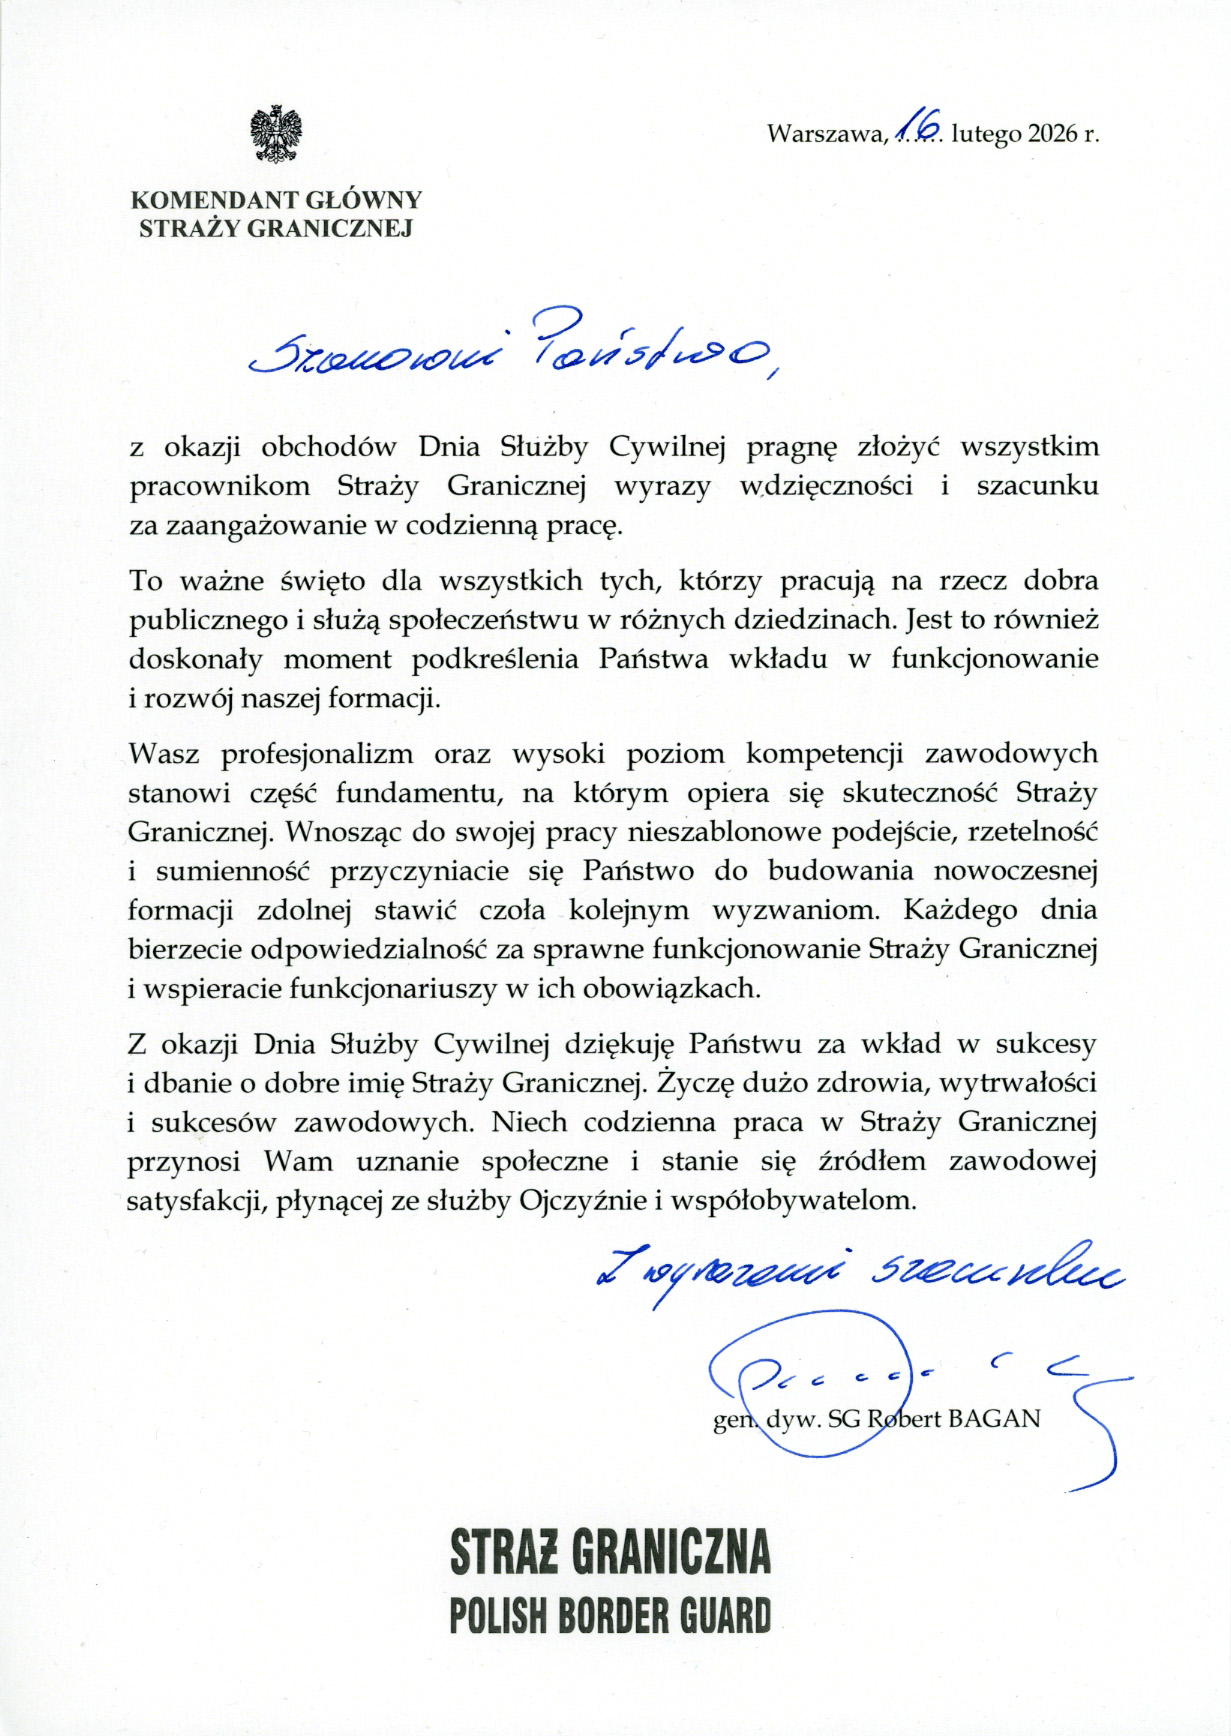 Warszawa, 16 lutego 2026 r.
KOMENDANT GŁÓWNY
STRAŻY GRANICZNEJ
Szanowni Państwo,
z okazji obchodów Dnia Służby Cywilnej pragnę złożyć wszystkim
pracownikom Straży Granicznej wyrazy wdzięczności i szacunku
za zaangażowanie w codzienną pracę.
To ważne święto dla wszystkich tych, którzy pracują na rzecz dobra
publicznego i służą społeczeństwu w różnych dziedzinach. Jest to również
doskonały moment podkreślenia Państwa wkładu w funkcjonowanie
i rozwój naszej formacji.
Wasz profesjonalizm oraz wysoki poziom kompetencji zawodowych
stanowi część fundamentu, na którym opiera się skuteczność Straży
Granicznej. Wnosząc do swojej pracy nieszablonowe podejście, rzetelność
i sumienność przyczyniacie się Państwo do budowania nowoczesnej
formacji zdolnej stawić czoła kolejnym wyzwaniom. Każdego dnia
bierzecie odpowiedzialność za sprawne funkcjonowanie Straży Granicznej
i wspieracie funkcjonariuszy w ich obowiązkach.
Z okazji Dnia Służby Cywilnej dziękuję Państwu za wkład w sukcesy
i dbanie o dobre imię Straży Granicznej. Życzę dużo zdrowia, wytrwałości
i sukcesów zawodowych. Niech codzienna praca w Straży Granicznej
przynosi Wam uznanie społeczne i stanie się źródłem zawodowej
satysfakcji, płynącej ze służby Ojczyźnie i współobywatelom.
Z wyrazami szacunku
gen. dyw. SG Robert BAGAN
STRAŻ GRANICZNA
POLISH BORDER GUARD